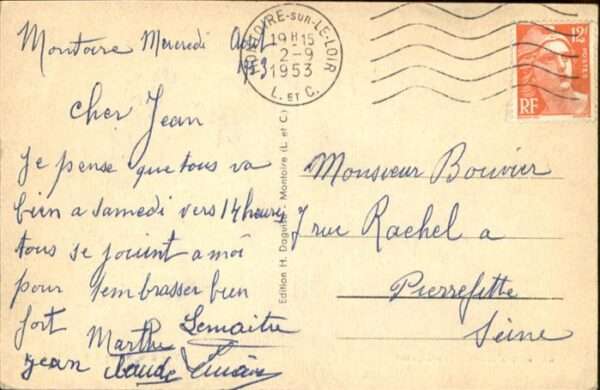 Montoire Mercredi Août
1953
MONTOIRE-SUR-LE-LOIR
19H15
2-9
1953
L. ET C.
12F
POSTES
RF
cher Jean
je pense que tous va
bien a samedi vers 14 heures
tous se joient a moi
pour t'embrasser bien
fort
Marthe Lemaitre
Jean Claude
Edition H. Daguise - Montoire (L. et C.)
Monsieur Bouvier
7 rue Rachel a
Pierrefitte
Seine